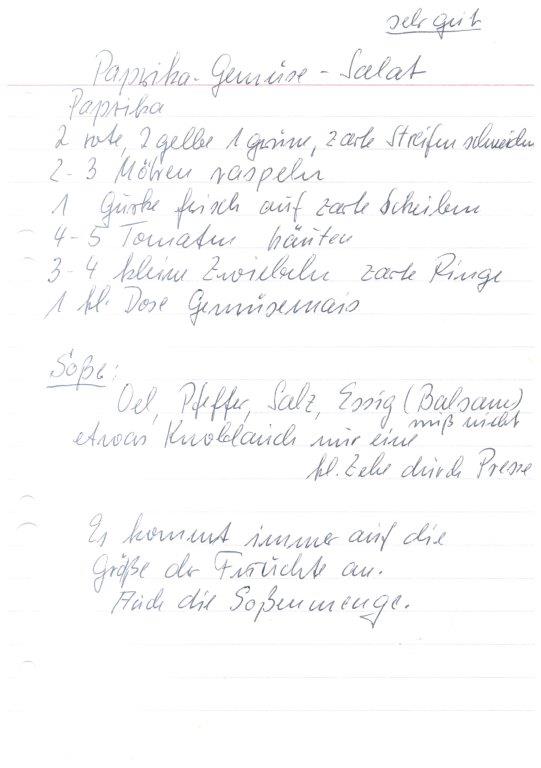 sehr gut
Paprika-Gemüse-Salat
Paprika
2 rote, 2 gelbe 1 grüne, zarte Streifen schneiden
2-3 Möhren raspeln
1 Gurke frisch auf zarte Scheiben
4-5 Tomaten häuten
3-4 kleine Zwiebeln zarte Ringe
1 kl. Dose Gemüsemais
Soße:
Oel, Pfeffer, Salz, Essig (Balsam)
muß nicht
etwas Knoblauch nur eine
kl. Zehe durch Presse
Es kommt immer auf die
Größe der Früchte an.
Auch die Soßenmenge.